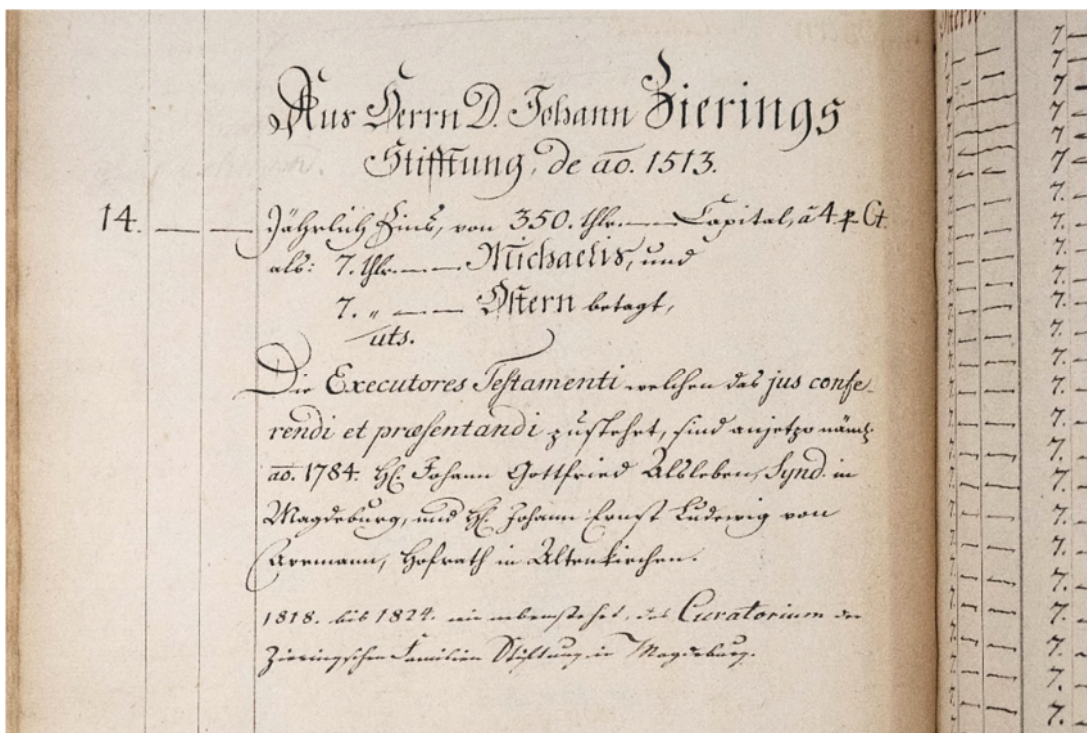 Aus Herrn D. Johann Zierings
Stifftung, de ao. 1513.
14. — — Jährlich Zins, von 350. thlr. — Capital, à 4 p Ct.
als: 7. thlr. — Michaelis, und
7. " — Ostern betagt,
uts.
Die Executores Testamenti welchen das jus confe-
rendi et præsentandi zustehet, sind anjetzo näml.
ao. 1784. H. Johann Gottfried Alsleben, Synd. in
Magdeburg, und H. Johann Ernst Ludewig von
hofrath in Altenkirchen.
1818. bis 1824. wie nebenstehet, das Curatorium der
Zieringschen Familien Stiftung in Magdeburg.